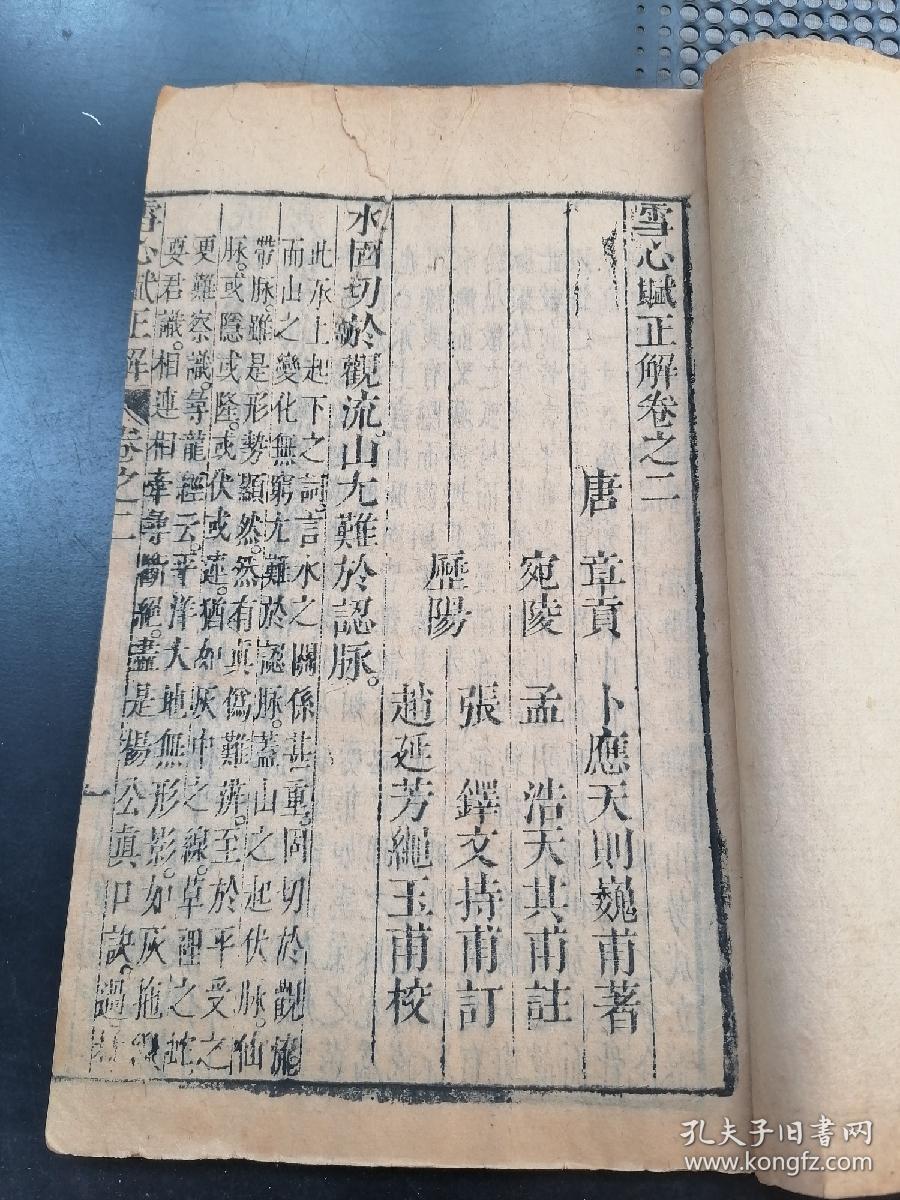 雪心賦正解卷之二
唐　章貢　卜應天則巍甫著
宛陵　孟　浩天其甫註
歷陽　張　鐸文持甫訂
趙延芳繩玉甫校
水固切於觀流。山尤難於認脉。
此承上起下之詞。言水之關係甚重。固切於觀流
而山之變化無窮。尤難於認脉。蓋山之起伏脉。仙
帶脉。雖是形勢顯然。然有真僞難辨。至於平受之
脉。或隱或隆。或伏或連。猶如灰中之線。草裡之蛇
更難察識。尋龍經云。平洋大地無形影。如灰拖
要君識。相連相牽尋斷絕。盡是楊公真口訣。
雪心賦正解 卷之二 一
孔夫子旧书网
www.kongfz.com